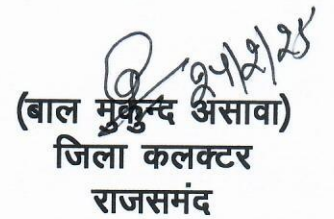 24/2/25
(बाल मुकुन्द असावा)
जिला कलक्टर
राजसमंद